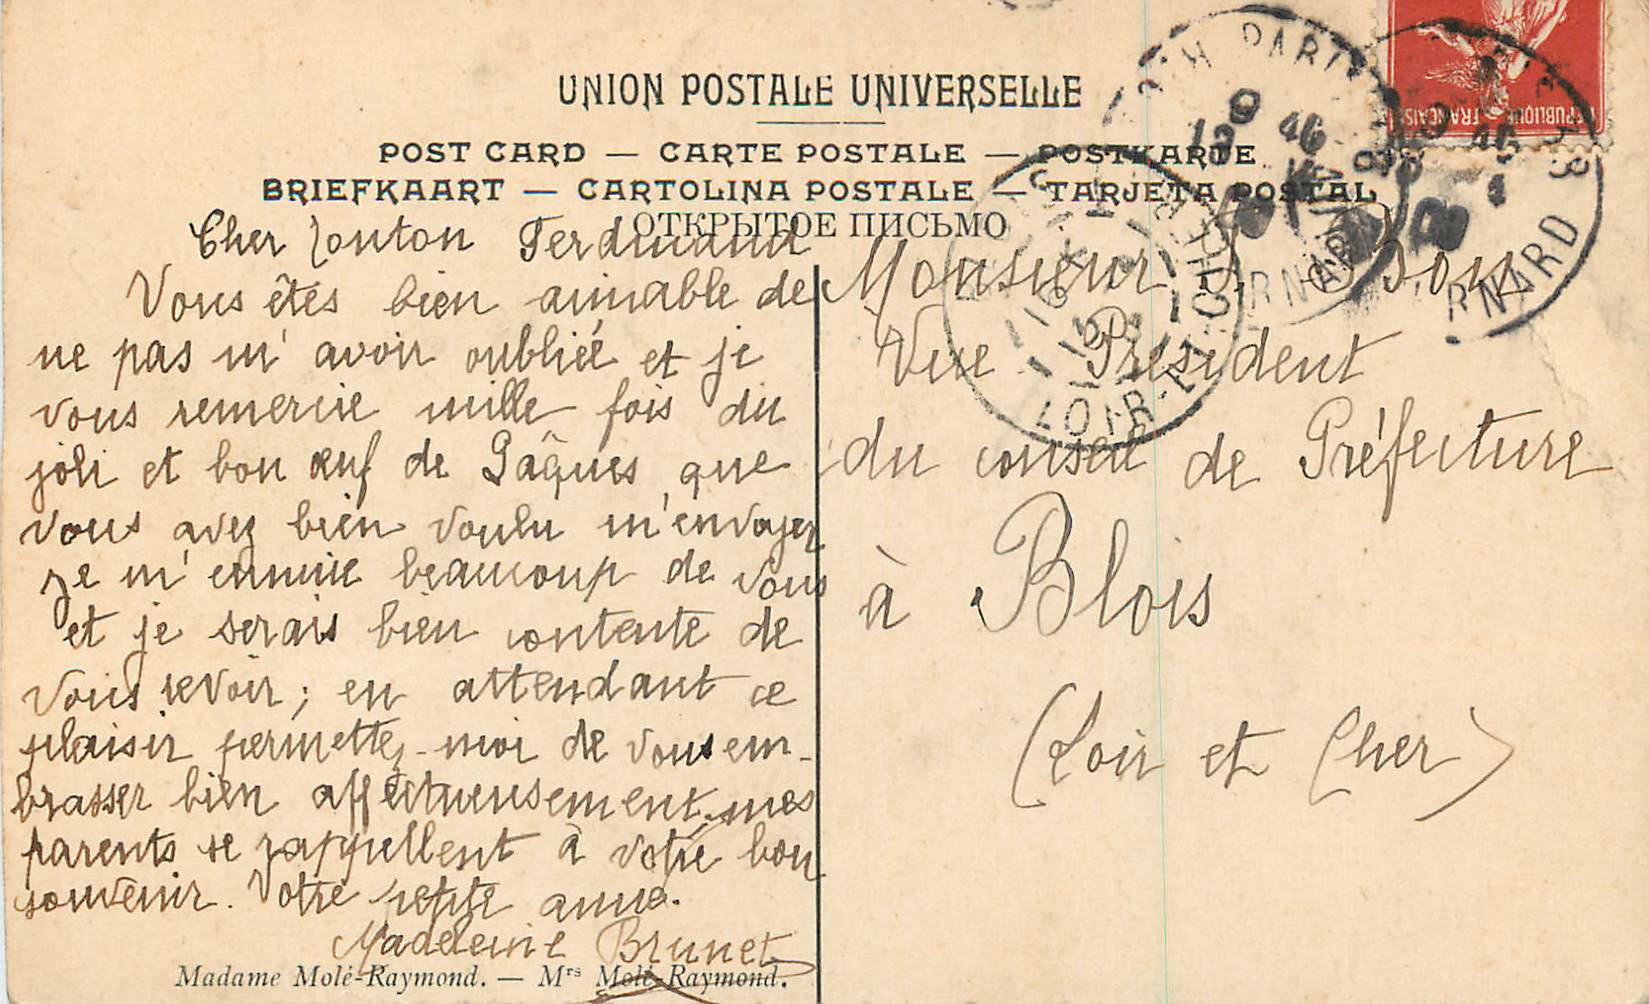 UNION POSTALE UNIVERSELLE
POST CARD — CARTE POSTALE — POSTKARTE
BRIEFKAART — CARTOLINA POSTALE — TARJETA POSTAL
ОТКРЫТОЕ ПИСЬМО
RÉPUBLIQUE FRANÇAISE
Cher Tonton Ferdinand
Vous êtes bien aimable de
ne pas m'avoir oubliée et je
vous remercie mille fois du
joli et bon œuf de Pâques que
vous avez bien voulu m'envoyer
je m'ennuie beaucoup de vous
et je serais bien contente de
vous revoir; en attendant ce
plaisir permettez-moi de vous em-
brasser bien affectueusement. mes
parents se rappellent à votre bon
souvenir. Votre petite amie.
Madeleine Brunet
Madame Molé-Raymond. — Mrs Molé-Raymond.
Monsieur
Vice Président
du conseil de Préfecture
à Blois
(Loir et Cher)
PARIS
LOIR-ET-CHER